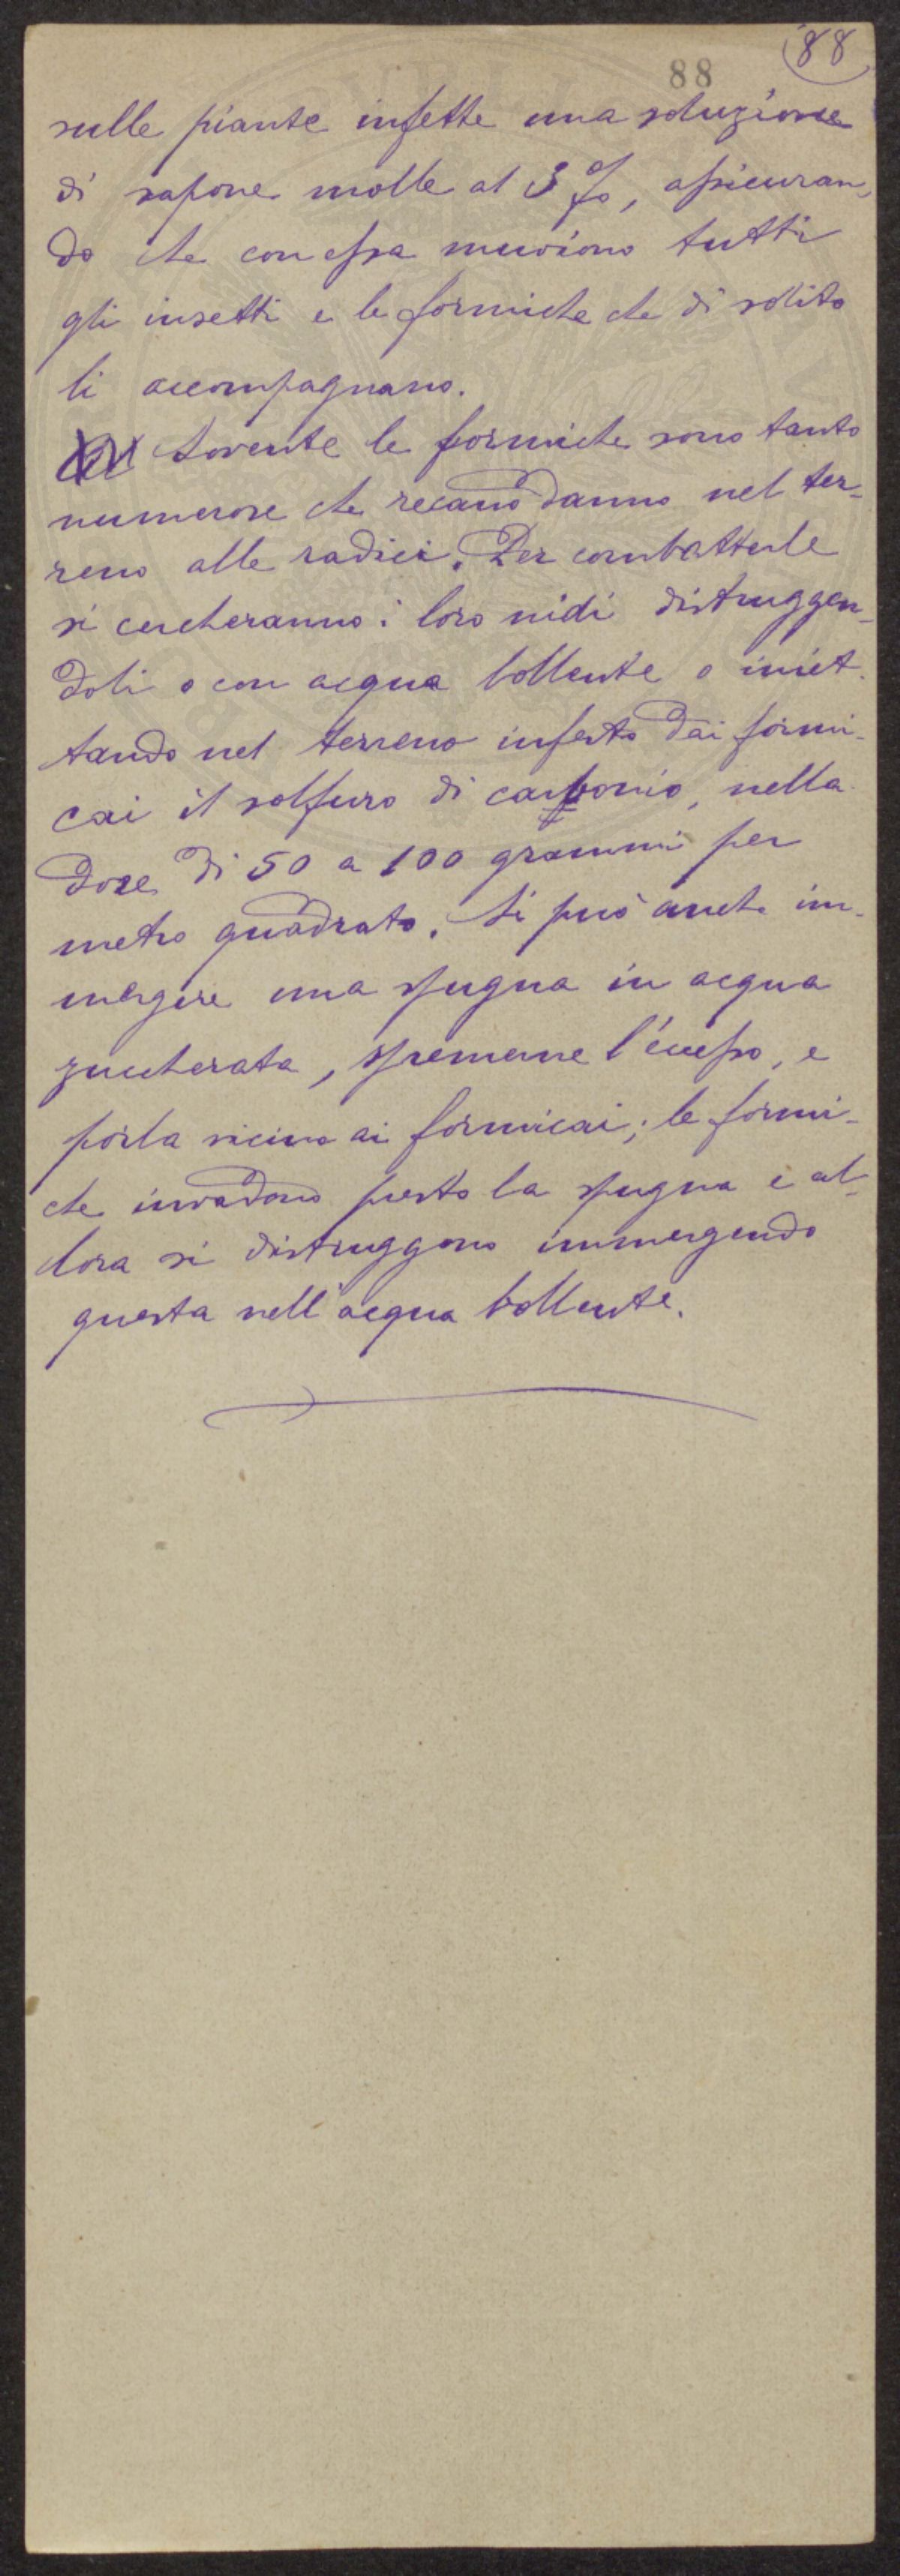 88
88
sulle piante infette una soluzione
di sapone molle al 3%, assicuran-
do che con essa muoiono tutti
gli insetti e le formiche che di solito
li accompagnano.
Sovente le formiche sono tanto
numerose che recano danno nel ter-
reno alle radici. Per combatterle
si cercheranno i loro nidi distruggen-
doli o con acqua bollente o iniet-
tando nel terreno infesto dai formi-
cai il solfuro di carbonio, nella
dose di 50 a 100 grammi per
metro quadrato. Si può anche im-
mergere una spugna in acqua
zuccherata, spremerne l'eccesso, e
porla vicino ai formicai; le formi-
che invadono presto la spugna e al-
lora si distruggono immergendo
questa nell'acqua bollente.